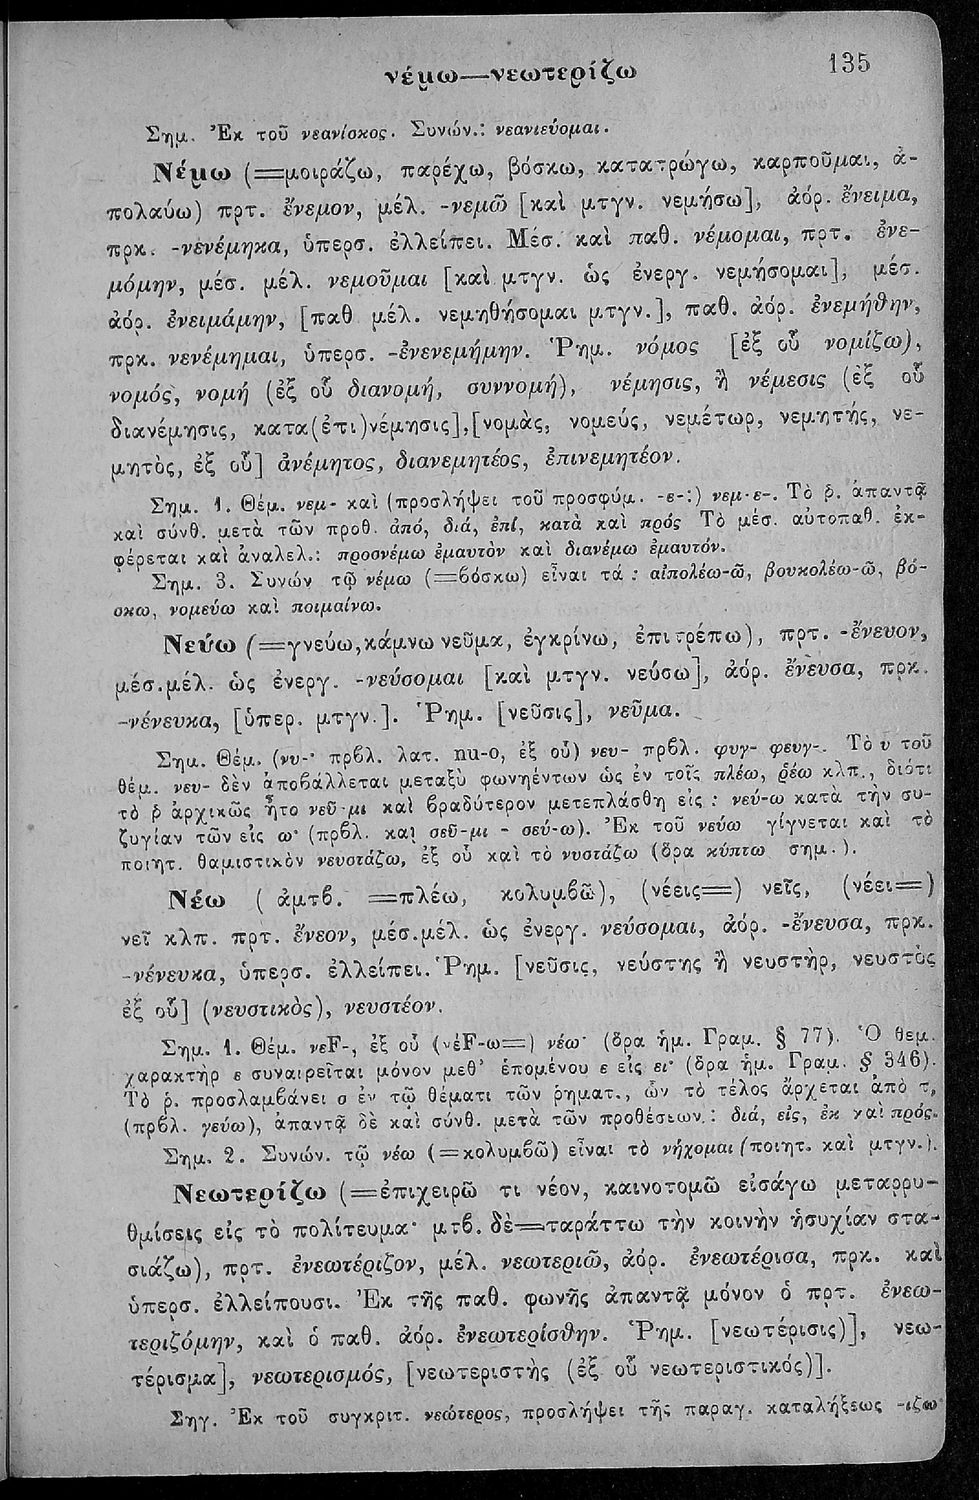 νέμω—νεωτερίζω 135
Σημ. Ἐκ τοῦ νεανίσκος. Συνών.: νεανιεύομαι.
Νέμω (=μοιράζω, παρέχω, βόσκω, κατατρώγω, καρποῦμαι, ἀ-
πολαύω) πρτ. ἔνεμον, μέλ. -νεμῶ [καὶ μτγν. νεμήσω], ἀόρ. ἔνειμα,
πρκ. -νενέμηκα, ὑπερσ. ἐλλείπει. Μέσ. καὶ παθ. νέμομαι, πρτ. ἐνε-
μόμην, μέσ. μέλ. νεμοῦμαι [καὶ μτγν. ὡς ἐνεργ. νεμήσομαι], μέσ.
ἀόρ. ἐνειμάμην, [παθ μέλ. νεμηθήσομαι μτγν.], παθ. ἀόρ. ἐνεμήθην,
πρκ. νενέμημαι, ὑπερσ. -ἐνενεμήμην. Ῥημ. νόμος [ἐξ οὗ νομίζω),
νομός, νομή (ἐξ οὗ διανομή, συννομή), νέμησις, ἢ νέμεσις (ἐξ οὗ
διανέμησις, κατα(ἐπι)νέμησις],[νομὰς, νομεύς, νεμέτωρ, νεμητής, νε-
μητὸς, ἐξ οὗ] ἀνέμητος, διανεμητέος, ἐπινεμητέον.
Σημ. 1. Θέμ. νεμ- καὶ (προσλήψει τοῦ προσφύμ. -ε-:) νεμ-ε-. Τὸ ῥ. ἀπαντᾷ
καὶ σύνθ. μετὰ τῶν προθ. ἀπό, διά, ἐπί, κατὰ καὶ πρός Τὸ μέσ. αὐτοπαθ. ἐκ-
φέρεται καὶ ἀναλελ.: προσνέμω ἐμαυτὸν καὶ διανέμω ἐμαυτόν.
Σημ. 3. Συνών τῷ νέμω (=βόσκω) εἶναι τά : αἰπολέω-ῶ, βουκολέω-ῶ, βό-
σκω, νομεύω καὶ ποιμαίνω.
Νεύω (=γνεύω,κάμνω νεῦμα, ἐγκρίνω, ἐπιτρέπω), πρτ. -ἔνευον,
μέσ.μέλ. ὡς ἐνεργ. -νεύσομαι [καὶ μτγν. νεύσω], ἀόρ. ἔνευσα, πρκ.
-νένευκα, [ὑπερ. μτγν.]. Ῥημ. [νεῦσις], νεῦμα.
Σημ. Θέμ. (νυ-· πρβλ. λατ. nu-o, ἐξ οὗ) νευ- πρβλ. φυγ- φευγ-. Τὸ υ τοῦ
θέμ. νευ- δὲν ἀποβάλλεται μεταξὺ φωνηέντων ὡς ἐν τοῖς πλέω, ῥέω κλπ., διότι
τὸ ῥ ἀρχικῶς ἦτο νεῦ-μι καὶ βραδύτερον μετεπλάσθη εἰς : νεύ-ω κατὰ τὴν συ-
ζυγίαν τῶν εἰς ω· (πρβλ. καὶ σεῦ-μι - σεύ-ω). Ἐκ τοῦ νεύω γίγνεται καὶ τὸ
ποιητ. θαμιστικὸν νευστάζω, ἐξ οὗ καὶ τὸ νυστάζω (ὅρα κύπτω σημ.).
Νέω ( ἀμτβ. =πλέω, κολυμβῶ), (νέεις=) νεῖς, (νέει=)
νεῖ κλπ. πρτ. ἔνεον, μέσ.μέλ. ὡς ἐνεργ. νεύσομαι, ἀόρ. -ἔνευσα, πρκ.
-νένευκα, ὑπερσ. ἐλλείπει. Ῥημ. [νεῦσις, νεύστης ἢ νευστὴρ, νευστὸς
ἐξ οὗ] (νευστικὸς), νευστέον.
Σημ. 1. Θέμ. νεF-, ἐξ οὗ (νέF-ω=) νέω· (ὅρα ἡμ. Γραμ. § 77). Ὁ θεμ.
χαρακτὴρ ε συναιρεῖται μόνον μεθ' ἑπομένου ε εἰς ει· (ὅρα ἡμ. Γραμ. § 346).
Τὸ ῥ. προσλαμβάνει σ ἐν τῷ θέματι τῶν ῥηματ., ὧν τὸ τέλος ἄρχεται ἀπὸ τ,
(πρβλ. γεύω), ἀπαντᾷ δὲ καὶ σύνθ. μετὰ τῶν προθέσεων.: διά, εἰς, ἐκ καὶ πρός.
Σημ. 2. Συνών. τῷ νέω (=κολυμβῶ) εἶναι τὸ νήχομαι (ποιητ. καὶ μτγν.).
Νεωτερίζω (=ἐπιχειρῶ τι νέον, καινοτομῶ εἰσάγω μεταρρυ-
θμίσεις εἰς τὸ πολίτευμα· μτβ. δὲ=ταράττω τὴν κοινὴν ἡσυχίαν στα-
σιάζω), πρτ. ἐνεωτέριζον, μέλ. νεωτεριῶ, ἀόρ. ἐνεωτέρισα, πρκ. καὶ
ὑπερσ. ἐλλείπουσι. Ἐκ τῆς παθ. φωνῆς ἀπαντᾷ μόνον ὁ πρτ. ἐνεω-
τεριζόμην, καὶ ὁ παθ. ἀόρ. ἐνεωτερίσθην. Ῥημ. [νεωτέρισις)], νεω-
τέρισμα], νεωτερισμός, [νεωτεριστὴς (ἐξ οὗ νεωτεριστικός)].
Σηγ. Ἐκ τοῦ συγκριτ. νεώτερος, προσλήψει τῆς παραγ. καταλήξεως -ιζω